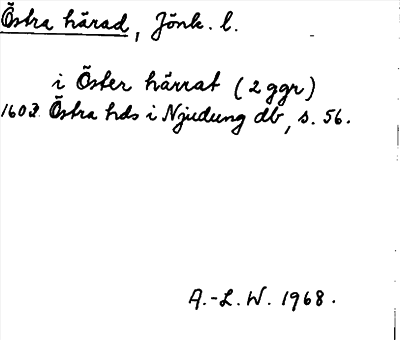 Östra härad, Jönk. l.
i Öster härrat (2 ggr)
1602 Östra hds i Njudung db, s. 56.
A.-L. W. 1968.